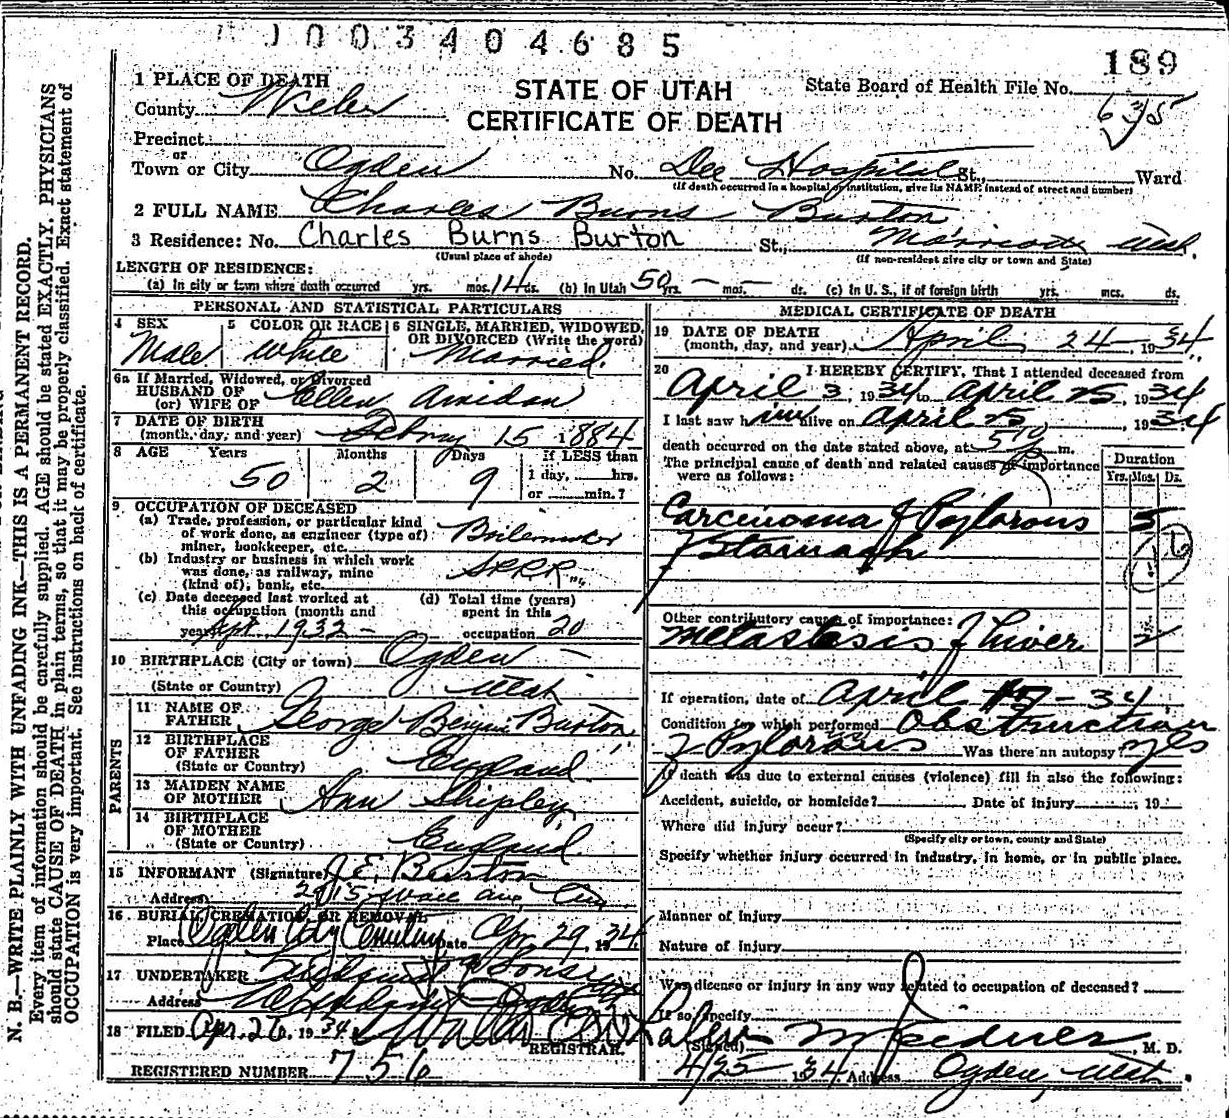 0 0 3 4 0 4 6 8 5
189
1 PLACE OF DEATH
STATE OF UTAH
State Board of Health File No.
County Weber
CERTIFICATE OF DEATH
63/5
Precinct
or
Town or City Ogden No. Dee Hospital St., Ward
(If death occurred in a hospital or institution, give its NAME instead of street and number)
2 FULL NAME Charles Burns Burton
3 Residence: No. Charles Burns Burton St., Marriott Utah
(Usual place of abode) (If non-resident give city or town and State)
LENGTH OF RESIDENCE:
(a) In city or town where death occurred yrs. mos. 14 ds. (b) in Utah 50 yrs. — mos. — ds. (c) In U. S., if of foreign birth yrs. mcs. ds.
PERSONAL AND STATISTICAL PARTICULARS
4 SEX 5 COLOR OR RACE 6 SINGLE, MARRIED, WIDOWED, OR DIVORCED (Write the word)
Male White Married.
6a If Married, Widowed, or Divorced
HUSBAND OF
(or) WIFE OF Ellen
7 DATE OF BIRTH
(month, day, and year) 15 1884
8 AGE Years Months Days If LESS than
1 day, hrs.
50 2 9 or min.?
9 OCCUPATION OF DECEASED
(a) Trade, profession, or particular kind
of work done, as engineer (type of) Boilermaker
miner, bookkeeper, etc.
(b) Industry or business in which work
was done, as railway, mine
(kind of), bank, etc. SPRR
(c) Date deceased last worked at
this occupation (month and
year) Apr. 1932 —
(d) Total time (years)
spent in this
occupation 20
10 BIRTHPLACE (City or town) Ogden —
(State or Country) Utah
PARENTS
11 NAME OF
FATHER George Burton
12 BIRTHPLACE
OF FATHER
(State or Country) England.
13 MAIDEN NAME
OF MOTHER Ann Shipley
14 BIRTHPLACE
OF MOTHER
(State or Country) England.
15 INFORMANT (Signature) J.E. Burton
Address ave,
16 BURIAL, CREMATION, OR REMOVAL
Place Ogden City Cemetery Date Apr. 29, 1934.
17 UNDERTAKER & Sons
Address
18 FILED Apr. 26. 1934
REGISTRAR.
REGISTERED NUMBER 756
MEDICAL CERTIFICATE OF DEATH
19 DATE OF DEATH
(month, day, and year) April 24 — 1934.
20 I HEREBY CERTIFY, That I attended deceased from
April 3, 1934 to April 25, 1934
I last saw h im alive on April 25, 1934
death occurred on the date stated above, at 5 10 P m.
The principal cause of death and related causes of importance
were as follows:
Duration
Yrs. Mos. Ds.
Carcinoma of Pylorous 5
of Stomach
Other contributory causes of importance:
Metastasis of Liver 2
If operation, date of April — 34
Condition for which performed Obstruction
of Pylorous Was there an autopsy? yes
If death was due to external causes (violence) fill in also the following:
Accident, suicide, or homicide? Date of injury , 19
Where did injury occur?
(Specify city or town, county and State)
Specify whether injury occurred in industry, in home, or in public place.
Manner of injury
Nature of injury
Was disease or injury in any way related to occupation of deceased?
If so, specify
(Signed) , M. D.
4/25 1934 Address Ogden, Utah.
N. B.—WRITE PLAINLY WITH UNFADING INK—THIS IS A PERMANENT RECORD.
Every item of information should be carefully supplied. AGE should be stated EXACTLY. PHYSICIANS
should state CAUSE OF DEATH in plain terms, so that it may be properly classified. Exact statement of
OCCUPATION is very important. See instructions on back of certificate.